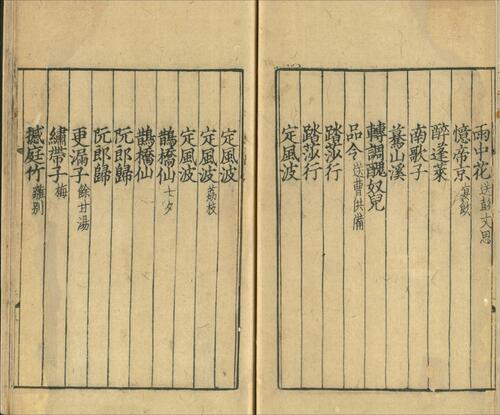 雨中花 送彭文思
憶帝京
醉蓬萊
南歌子
驀山溪
轉調醜奴兒
品令 送曹供備
踏莎行
踏莎行
定風波
定風波
定風波 荔枝
鵲橋仙 七夕
鵲橋仙
阮郎歸
阮郎歸
更漏子 餘甘湯
繡帶子 梅
撼庭竹 離別